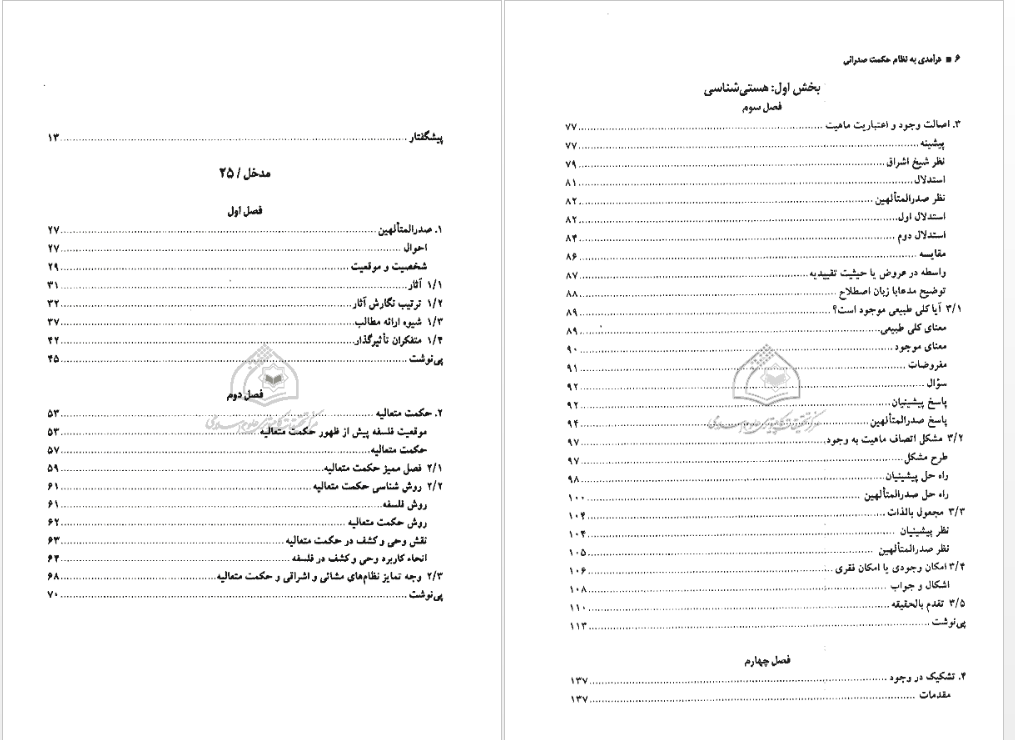 پیشگفتار ........ ۱۳
مدخل / ۲۵
فصل اول
۱. صدرالمتألهین ........ ۲۷
احوال ........ ۲۷
شخصیت و موقعیت ........ ۲۹
۱/۱ آثار ........ ۳۱
۱/۲ ترتیب نگارش آثار ........ ۳۲
۱/۳ شیوه ارائه مطالب ........ ۳۷
۱/۴ متفکران تأثیرگذار ........ ۴۲
پی‌نوشت ........ ۴۵
فصل دوم
۲. حکمت متعالیه ........ ۵۳
موقعیت فلسفه پیش از ظهور حکمت متعالیه ........ ۵۳
حکمت متعالیه ........ ۵۷
۲/۱ فصل ممیز حکمت متعالیه ........ ۵۹
۲/۲ روش شناسی حکمت متعالیه ........ ۶۱
روش فلسفه ........ ۶۱
روش حکمت متعالیه ........ ۶۲
نقش وحی و کشف در حکمت متعالیه ........ ۶۳
انحاء کاربرد وحی و کشف در فلسفه ........ ۶۴
۲/۳ وجه تمایز نظام‌های مشائی و اشراقی و حکمت متعالیه ........ ۶۸
پی‌نوشت ........ ۷۰
۶ ■ درآمدی به نظام حکمت صدرائی
بخش اول: هستی‌شناسی
فصل سوم
۳. اصالت وجود و اعتباریت ماهیت ........ ۷۷
پیشینه ........ ۷۷
نظر شیخ اشراق ........ ۷۹
استدلال ........ ۸۱
نظر صدرالمتألهین ........ ۸۲
استدلال اول ........ ۸۲
استدلال دوم ........ ۸۴
مقایسه ........ ۸۶
واسطه در عروض یا حیثیت تقییدیه ........ ۸۷
توضیح مدعابا زبان اصطلاح ........ ۸۸
۳/۱ آیا کلی طبیعی موجود است؟ ........ ۸۹
معنای کلی طبیعی ........ ۸۹
معنای موجود ........ ۹۰
مفروضات ........ ۹۱
سؤال ........ ۹۲
پاسخ پیشینیان ........ ۹۲
پاسخ صدرالمتألهین ........ ۹۴
۳/۲ مشکل اتصاف ماهیت به وجود ........ ۹۷
طرح مشکل ........ ۹۷
راه حل پیشینیان ........ ۹۸
راه حل صدرالمتألهین ........ ۱۰۰
۳/۳ مجعول بالذات ........ ۱۰۴
نظر پیشینیان ........ ۱۰۴
نظر صدرالمتألهین ........ ۱۰۵
۳/۴ امکان وجودی یا امکان فقری ........ ۱۰۶
اشکال و جواب ........ ۱۰۸
۳/۵ تقدم بالحقیقه ........ ۱۱۰
پی‌نوشت ........ ۱۱۳
فصل چهارم
۴. تشکیک در وجود ........ ۱۳۷
مقدمات ........ ۱۳۷